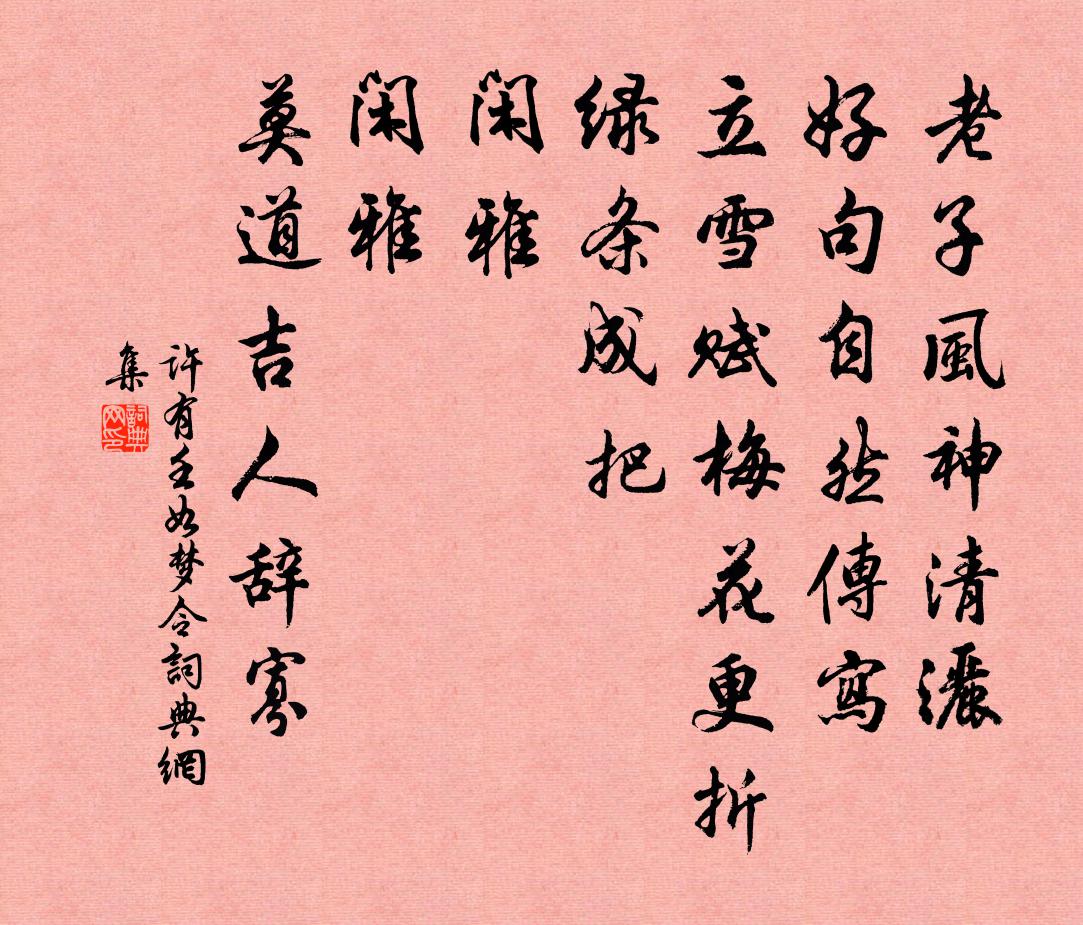 老子風神清灑
好句自然傳寫
立雪賦梅花更折
緑条成把
閑雅
閑雅
莫道吉人辞寡
許有壬如梦令詞典網
集
詞典网印